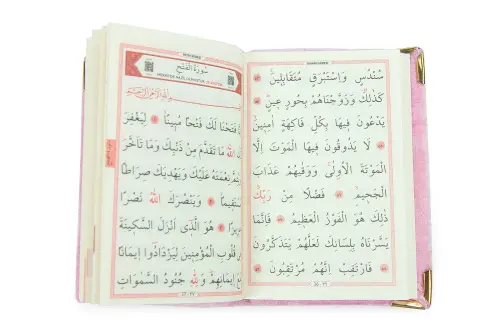 سُنْدُسٍ وَاِسْتَبْرَقٍ مُتَقَابِلٖينَۙ
كَذٰلِكَ وَزَوَّجْنَاهُمْ بِحُورٍ عٖينٍۜ
يَدْعُونَ فٖيهَا بِكُلِّ فَاكِهَةٍ اٰمِنٖينَۙ
لَا يَذُوقُونَ فٖيهَا الْمَوْتَ اِلَّا
الْمَوْتَةَ الْاُو۫لٰىۚ وَوَقٰيهُمْ عَذَابَ
الْجَحٖيمِۙ فَضْلًا مِنْ رَبِّكَۜ
ذٰلِكَ هُوَ الْفَوْزُ الْعَظٖيمُ فَاِنَّمَا
يَسَّرْنَاهُ بِلِسَانِكَ لَعَلَّهُمْ يَتَذَكَّرُونَ
فَارْتَقِبْ اِنَّهُمْ مُرْتَقِبُونَ
سُورَةُ الْفَتْحِ
بِسْمِ اللّٰهِ الرَّحْمٰنِ الرَّحٖيمِ
فَتَحْنَا لَكَ فَتْحًا مُبٖينًاۙ لِيَغْفِرَ
اللّٰهُ مَا تَقَدَّمَ مِنْ ذَنْبِكَ وَمَا تَاَخَّرَ
نِعْمَتَهُ عَلَيْكَ وَيَهْدِيَكَ صِرَاطًا
وَيَنْصُرَكَ اللّٰهُ نَصْرًا
هُوَ الَّذٖٓي اَنْزَلَ السَّكٖينَةَ
قُلُوبِ الْمُؤْمِنٖينَ لِيَزْدَادُٓوا اٖيمَانًا
اٖيمَانِهِمْۜ وَلِلّٰهِ جُنُودُ السَّمٰوَاتِ